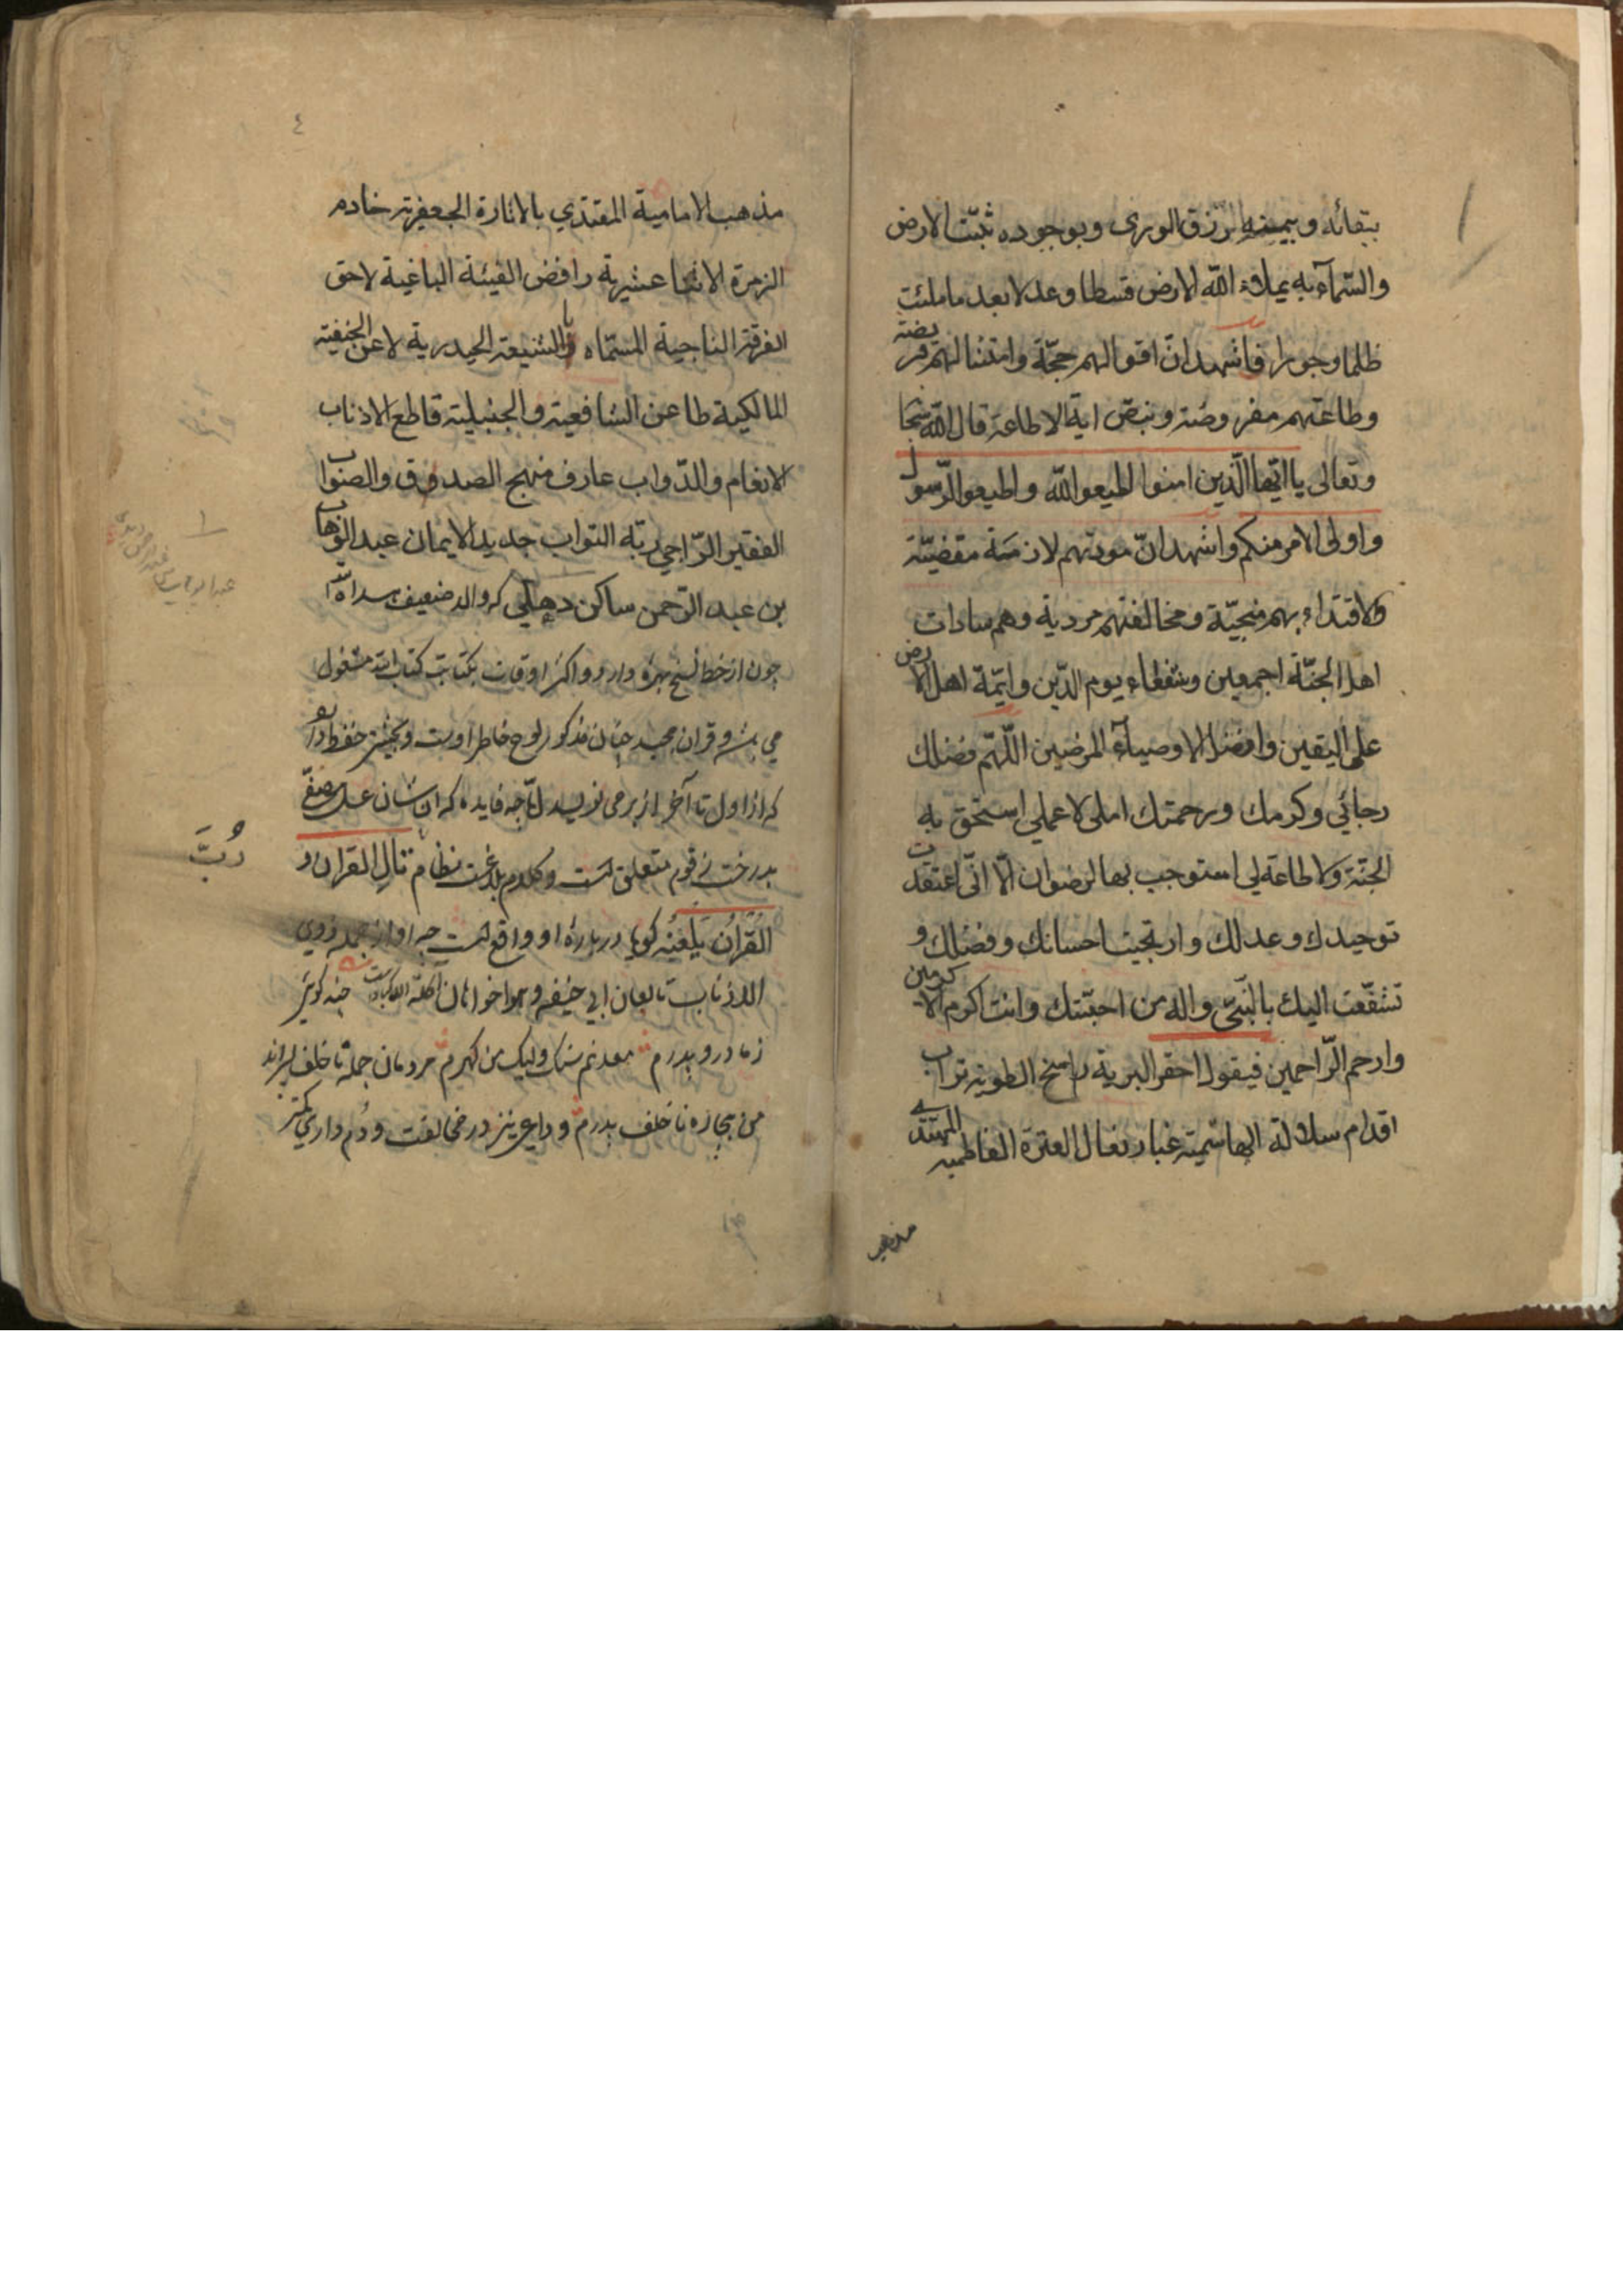 ببقائه وبيمنه رزق الورى وبوجوده ثبتت الارض
والسّمآء به يملاء الله الارض قسطا وعدلا بعد ما ملئت
ظلما وجورا فاشهد انّ اقوالهم حجّة وامتثالهم فريضة
وطاعتهم مفروضة وبنصّ اية الاطاعة قال الله سبحا
وتعالى يا ايّها الّذين امنوا اطيعو الله واطيعو الرّسول
واولى الامر منكم واشهد انّ مودتهم لازمة مقضيّة
والاقتداء بهم منجيّة ومخالفتهم مردية وهم سادات
اهل الجنّة اجمعين وشفعاء يوم الدّين وايمّة اهل الارض
على اليقين وافضل الاوصيآء المرضيين اللّهمّ فضلك
رجائي وكرمك ورحمتك املى لا عملى استحق به
الجنّة ولا طاعة لي استوجب بها الرضوان الّا انّى اعتقدت
توحيدك وعدلك وارتجيت احسانك وفضلك و
تشفّعت اليك بالنّبىّ واله من احبّتك وانت اكرم الاكرمين
وارحم الرّاحمين فيقول احقر البرية راسخ الطوية تراب
اقدام سلالة الهاشمية غبار نعال العترة الفاطمية المهتدى
مذهب
٤
مذهب الامامية المقتدي بالاثارة الجعفرية خادم
الزمرة الاثنا عشرية رافض الفيئة الباغية لاحق
الفرقة الناجية المسمّاه بالشيعة الحيدرية لاعن الحنفية
المالكية طاعن الشافعية والحنبلية قاطع الاذناب
الانعام والدّواب عارف منهج الصدوق والصواب
الفقير الرّاجي ربّه التواب جديد الايمان عبد الوهاب
بن عبد الرّحمن ساكن دهلي كه والد ضعيف
چون از خط نسخ بهره دارد و اكثر اوقات بكتابت كتاب الله مشغول
مي و قران مجيد چنان مذكور لوح خاطر اوست وحفظ دارد
كه از اول تا آخر از بر مي نويسد چه فايده كه
بدرخت زقوم متعلق است وكلام بلاغت نظام تال القران و
القُرْانُ يَلْعَنُه كويا درباره او واقع است چه او از جمله ذوي
الاذناب تابعان ابي حنيفه وهواخواهان
ز مادر و پدرم معدنم سنك وليك من كهرم مردمان جمله ناخلف پسراند
من بيچاره ناخلف پدرم و داعي عزيز در مخالفت
دُبَّ